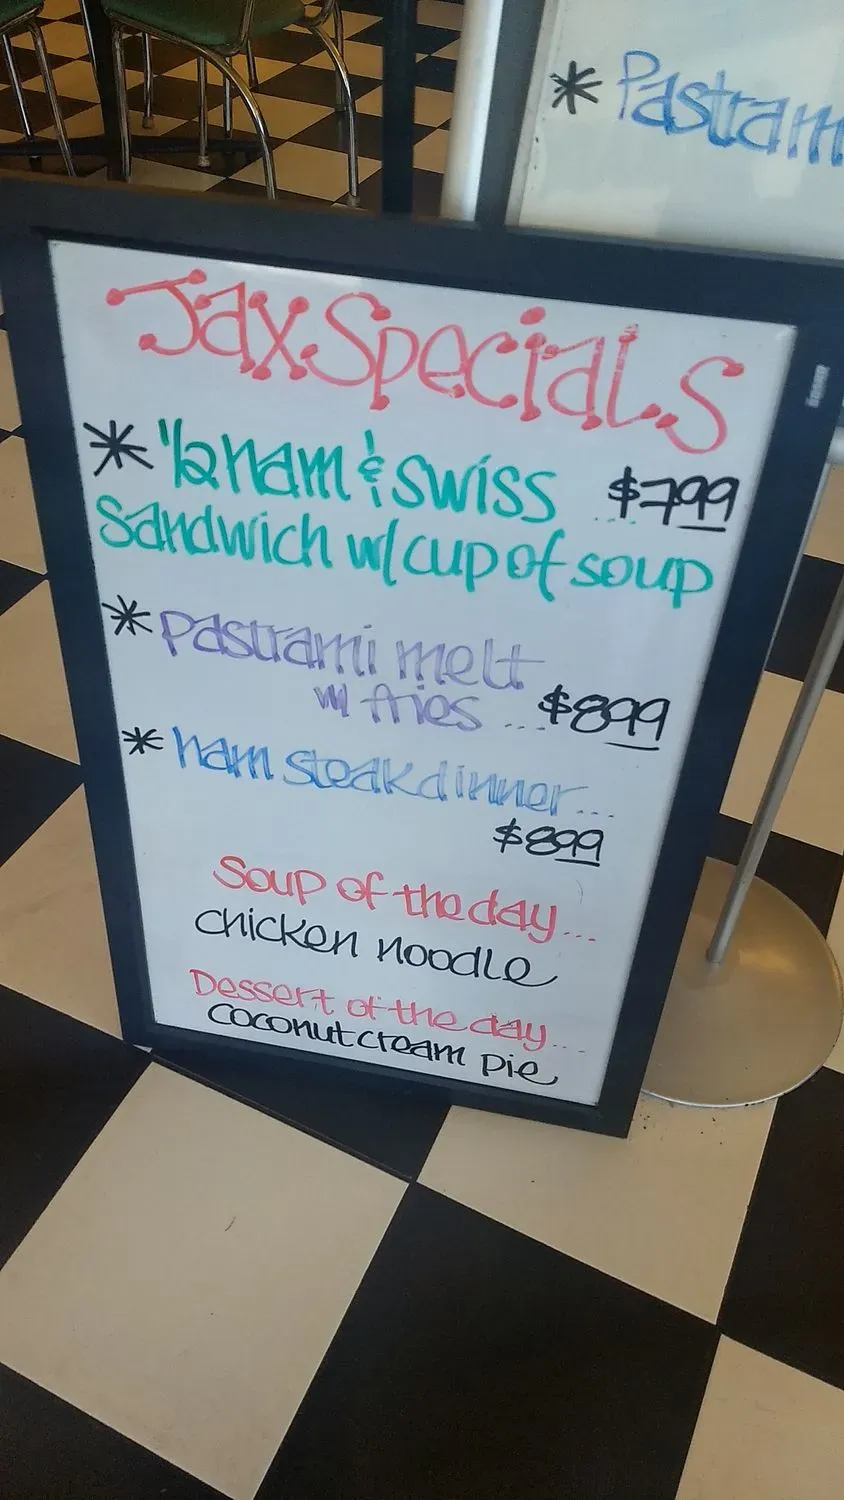 * Pastram
Jax Specials
* 1/2 ham & swiss $7.99
Sandwich w/ cup of soup
* pastrami melt
w/ fries ... $8.99
* ham steak dinner...
$8.99
Soup of the day...
chicken noodle
Dessert of the day....
coconut cream pie